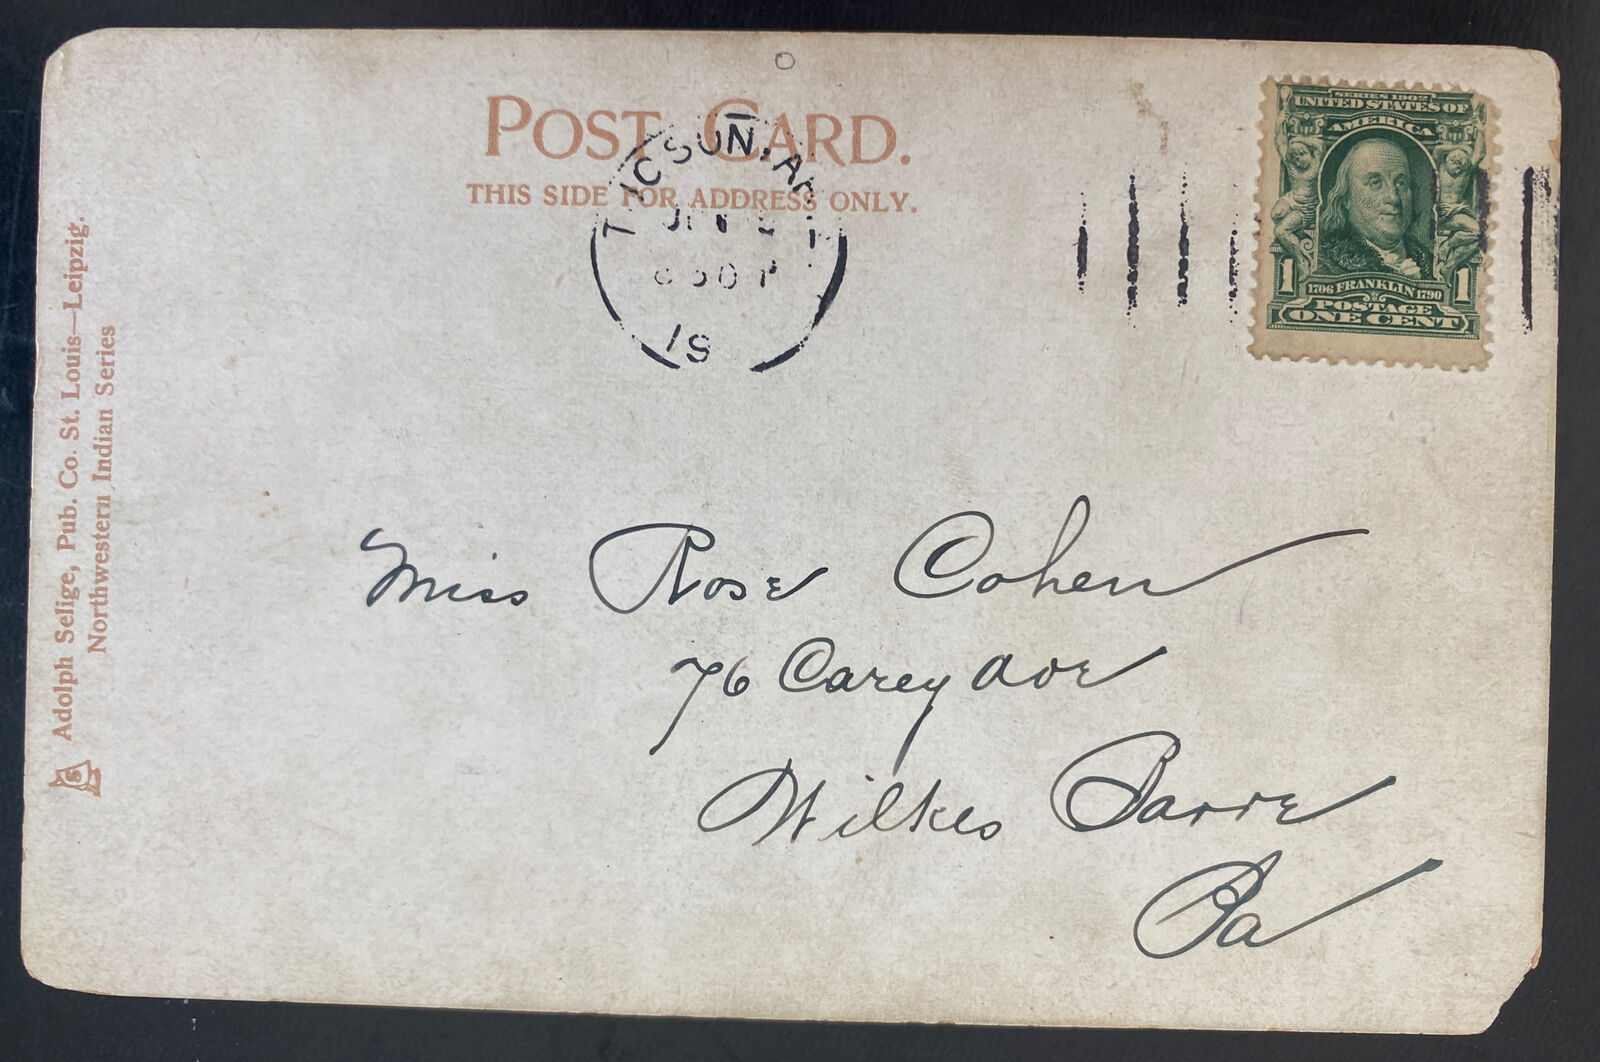 POST CARD.
THIS SIDE FOR ADDRESS ONLY.
TUCSON, AR
19
SERIES 1902
UNITED STATES OF
AMERICA
1 1706 FRANKLIN 1790 1
POSTAGE
ONE CENT
Adolph Selige, Pub. Co. St. Louis—Leipzig.
Northwestern Indian Series
Miss Rose Cohen
76 Carey Ave
Wilkes Barre
Pa